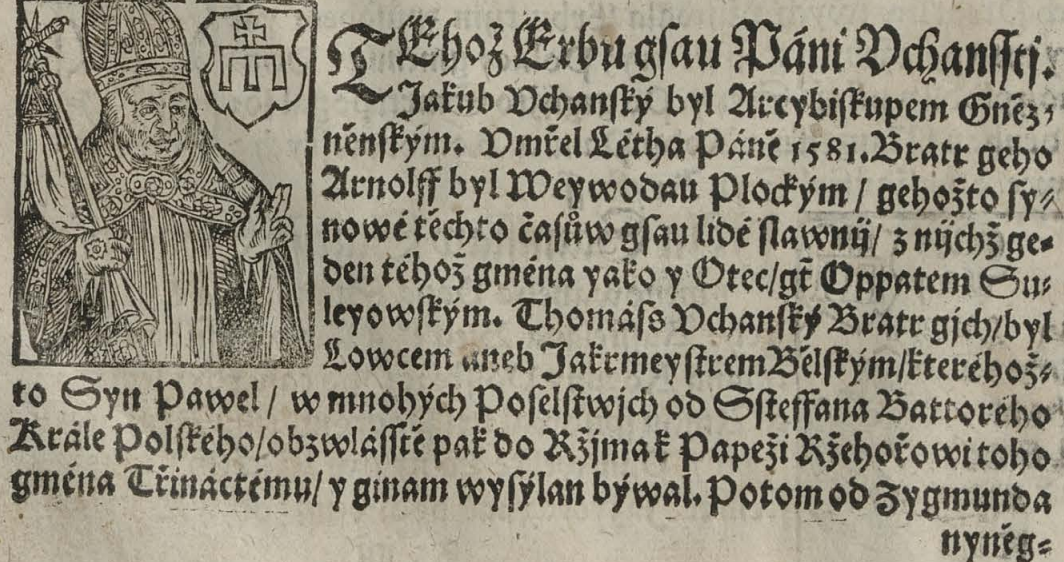 TEhož Erbu gsau Páni Vchansstj.
Jakub Vchanský byl Arcybiskupem Gněz-
něnským. Vmřel Létha Páně 1581. Bratr geho
Arnolff byl Weywodau Plockým / gehožto sy-
nowé těchto časůw gsau lidé slawnij / z nijchž ge-
den téhož gména yako y Otec / gt̄ Oppatem Su-
leyowským. Thomáss Vchanský Bratr gjch / byl
Lowcem aneb Jakrmeystrem Bělským / kteréhož-
to Syn Pawel / w mnohých Poselstwjch od Ssteffana Battorého
Krále Polského / obzwlásstě pak do Ržjma k Papeži Ržehořowi toho
gména Třináctému / y ginam wysýlan býwal. Potom od Zygmunda
nyněg-